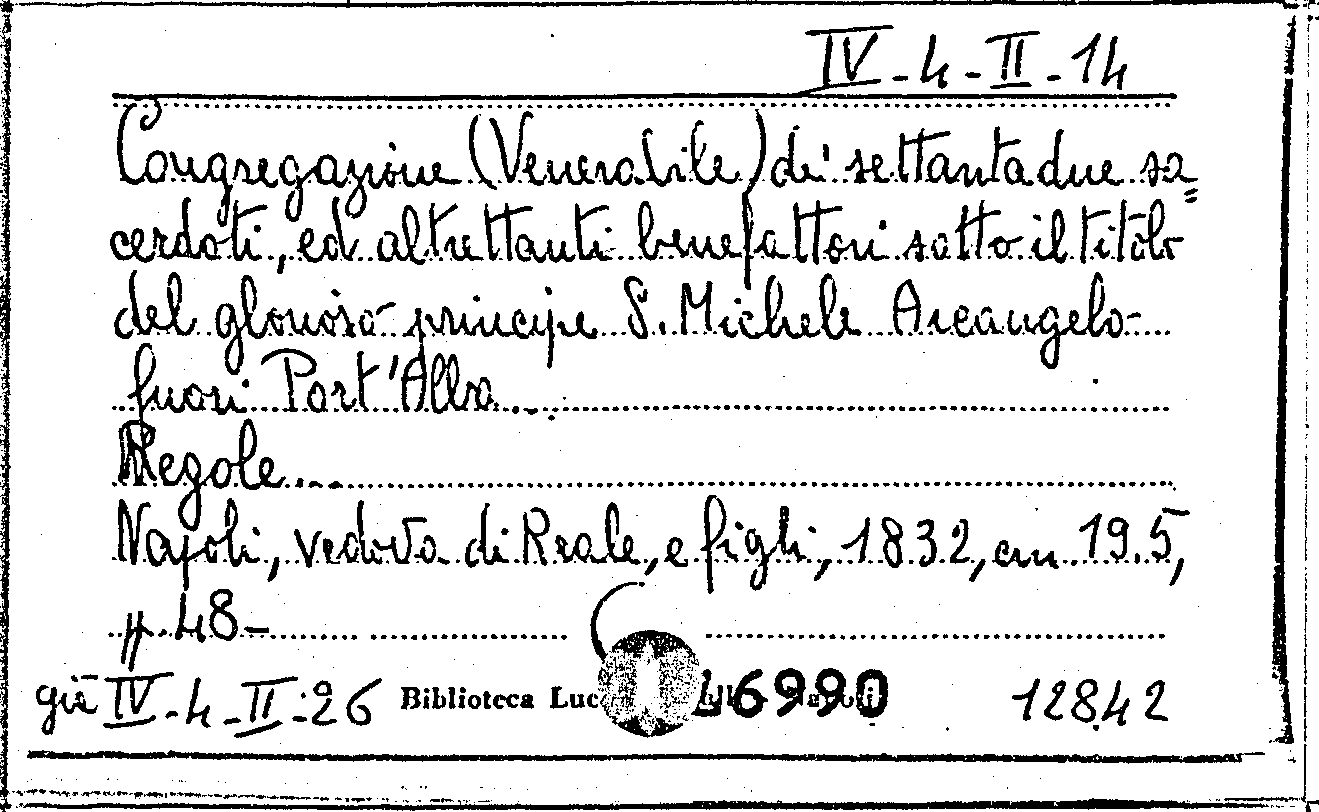 IV-4-II-14
Congregazione (Venerabile) di settantadue sa=
cerdoti, ed altrettanti benefattori sotto il titolo
del glorioso principe S. Michele Arcangelo
fuori Port'Alba...
Regole...
Napoli, vedova di Reale, e figli, 1832, cm. 19.5,
pp 48-
già IV-4-II-26 Biblioteca 46990 12842